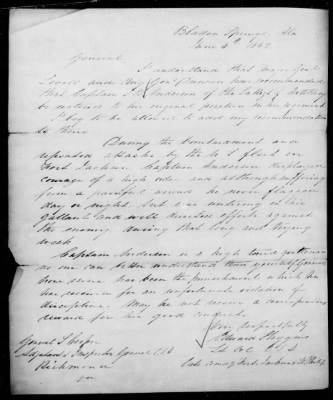 Bladon Springs, Ala
June 4th 1862
General
I understand that Major Genl
Lovell and Brig Gen Duncan have recommended
that Captain Anderson of the Artillery
be restored to his original position in his regiment
I beg to be allowed to add my recommendation
to theirs
During the bombardment and
repeated attacks by the fleet on
Fort Jackson Captain Anderson displayed
courage of a high order and although suffering
from a painful wound he never flagged
day or night, but was untiring in his
gallant and well directed efforts against
the enemy during that long and trying
week
Captain Anderson is a high toned gentleman
no one can better understand than yourself General
how severe has been the punishment which he
has received for an unfortunate violation of
discipline. May he not receive a corresponding
reward for his good conduct
Very respectfully
Edward Higgins
Lt Col C.S.A
Late comdg Forts Jackson & St Philip
Genrl S Cooper
Adjutant & Inspector General C.S.A
Richmond
Va